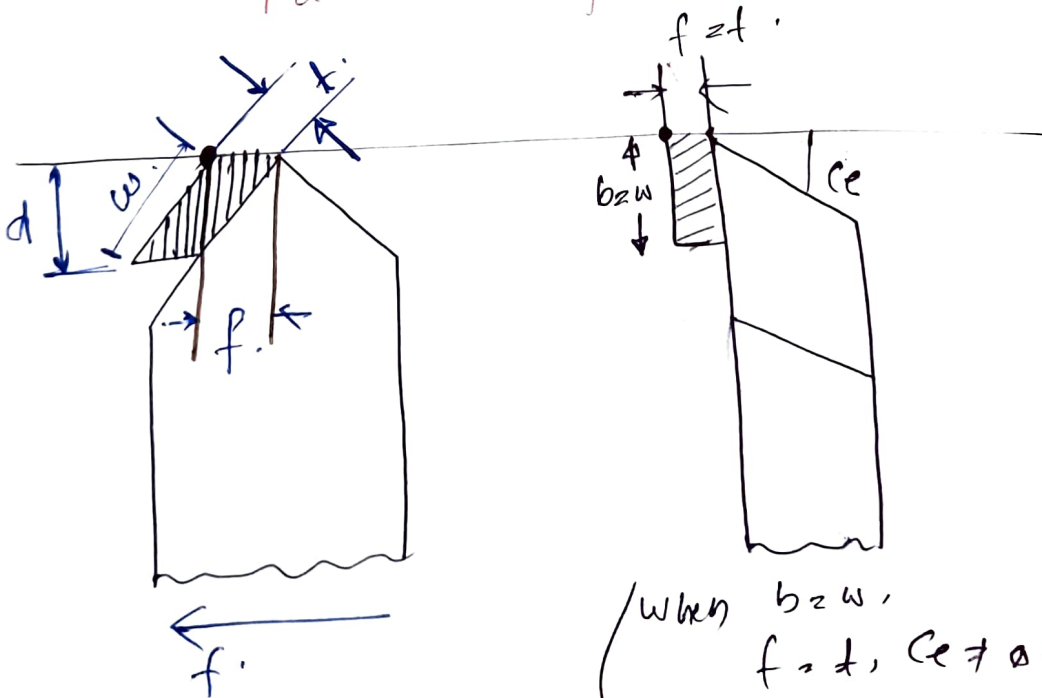 f = t .
t.
w.
d
f.
f.
b = w
Ce
when b = w,
f = t, Ce ≠ 0